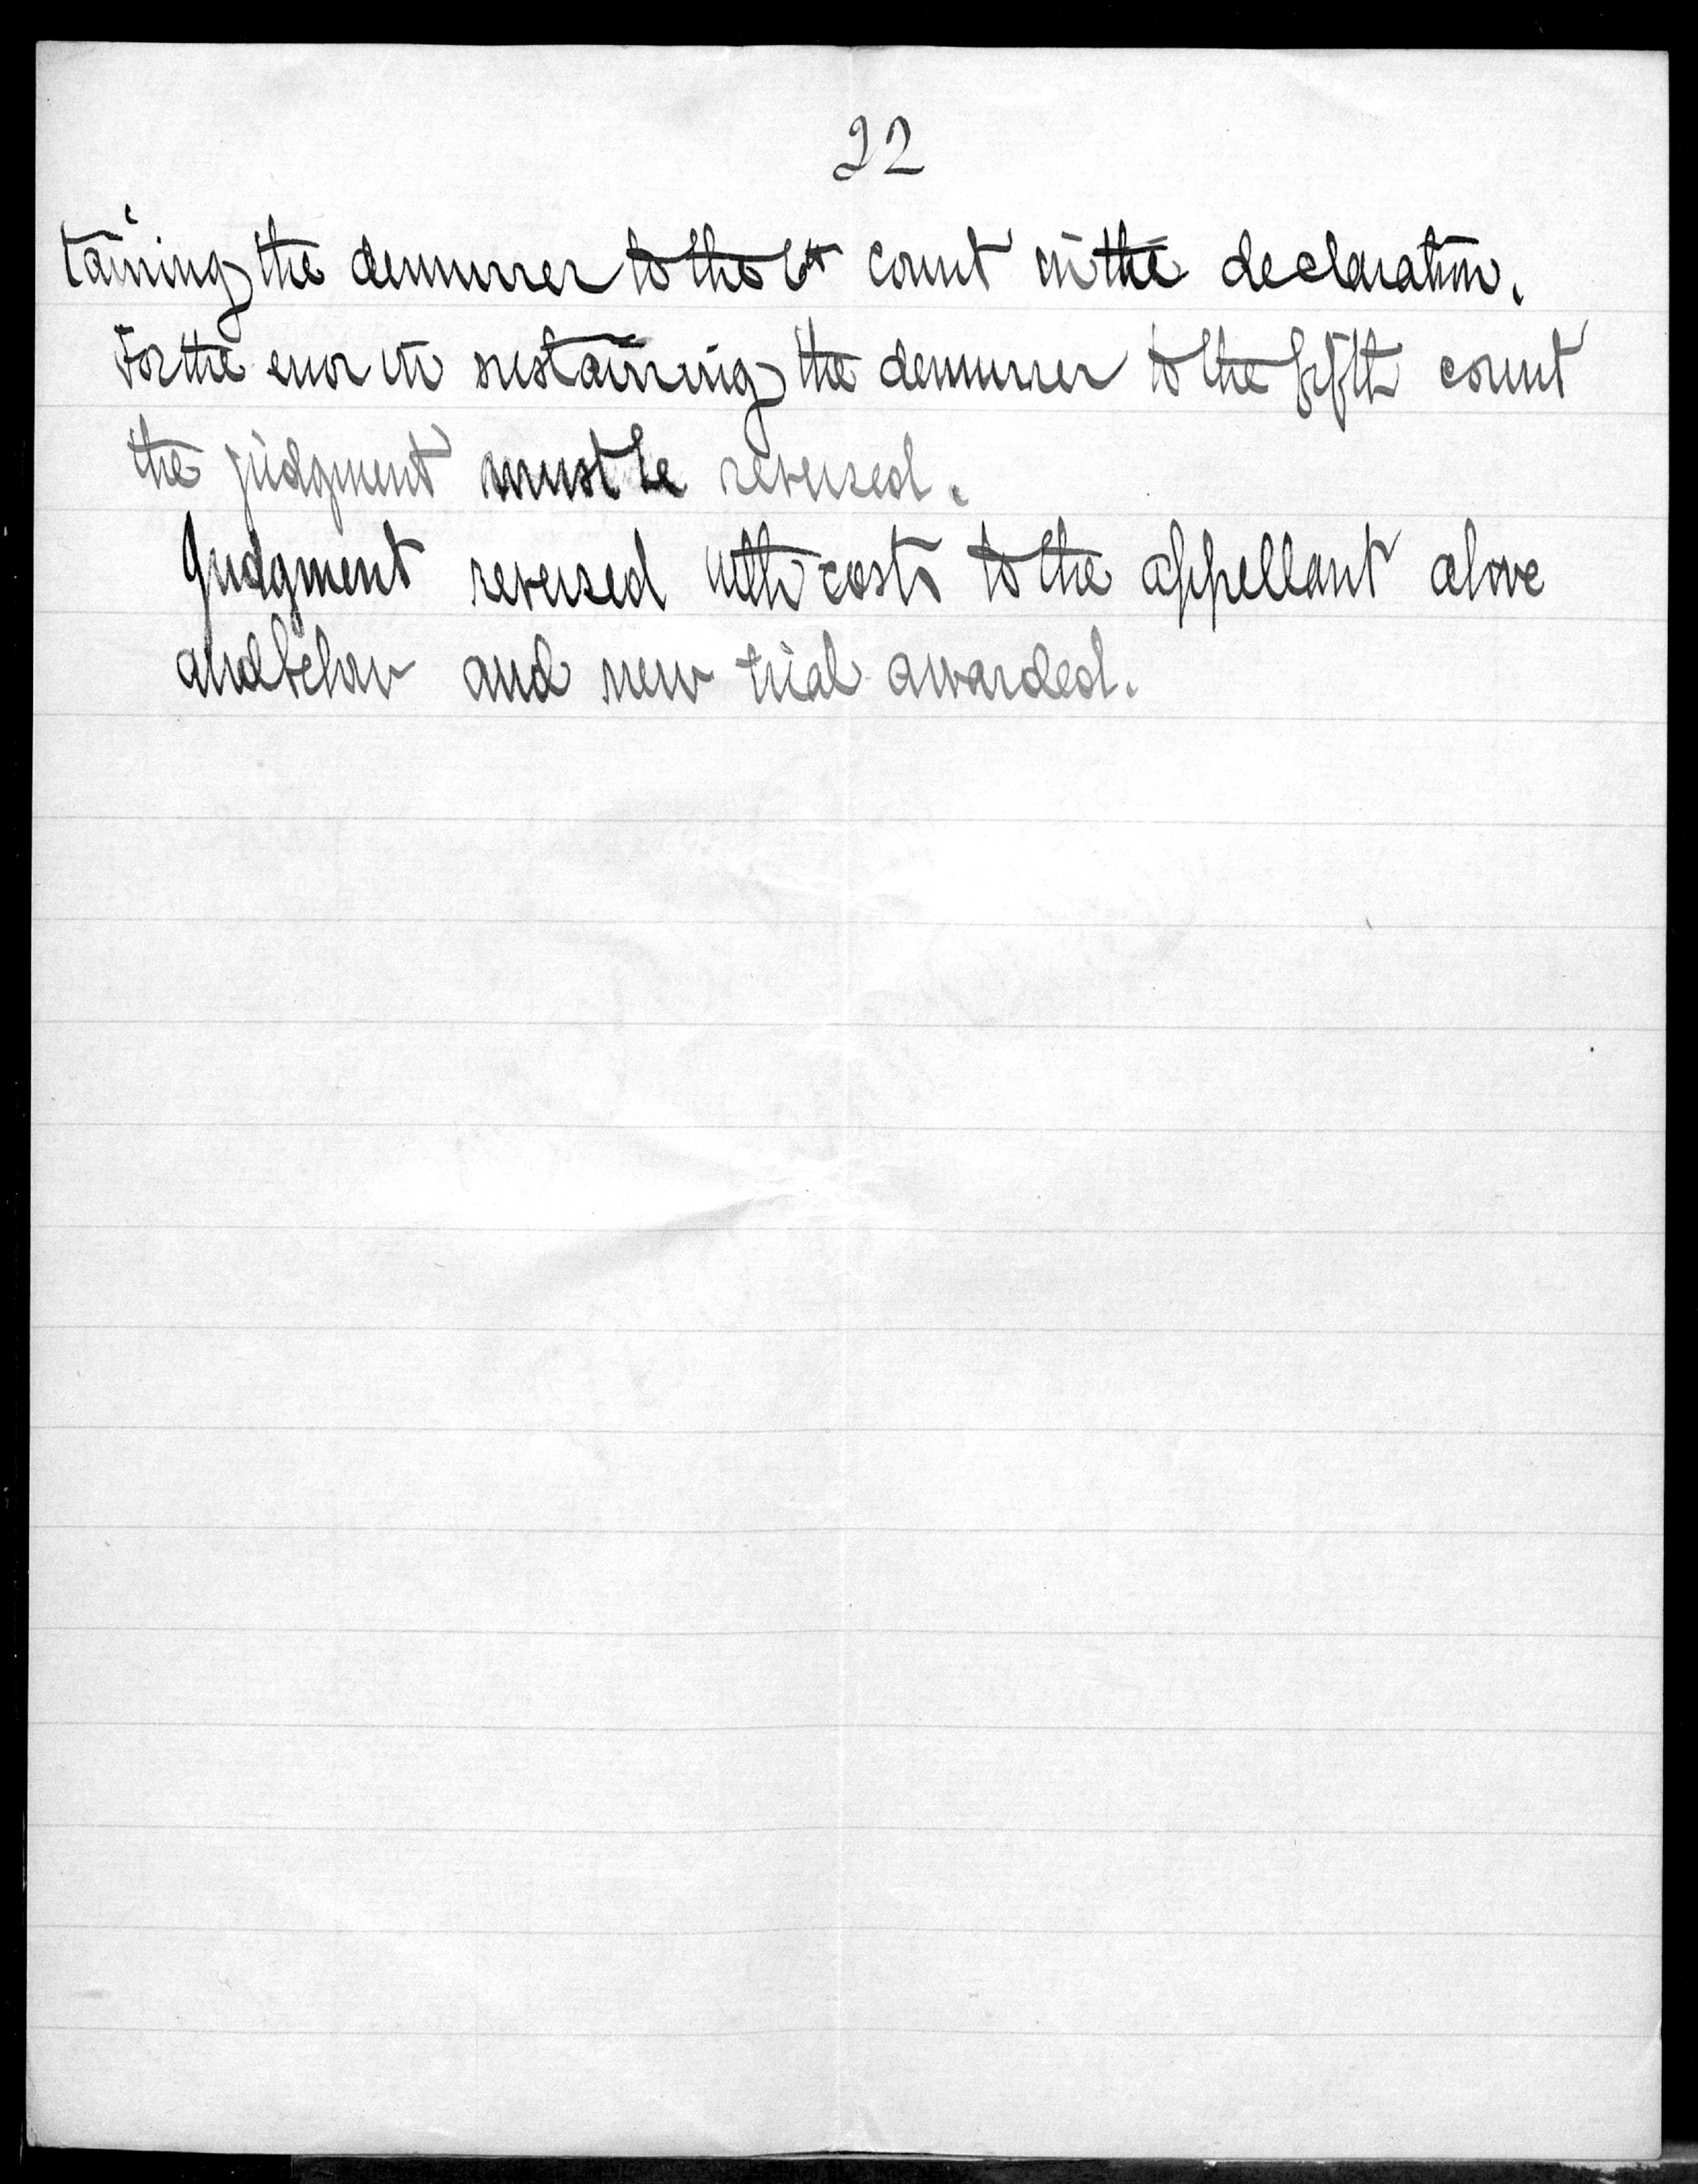 22
taining the demurrer to the count in the declaration.
For the error in sustaining the demurrer to the fifth count
the judgment must be reversed.
Judgment reversed with costs to the appellant above
and below and new trial awarded.